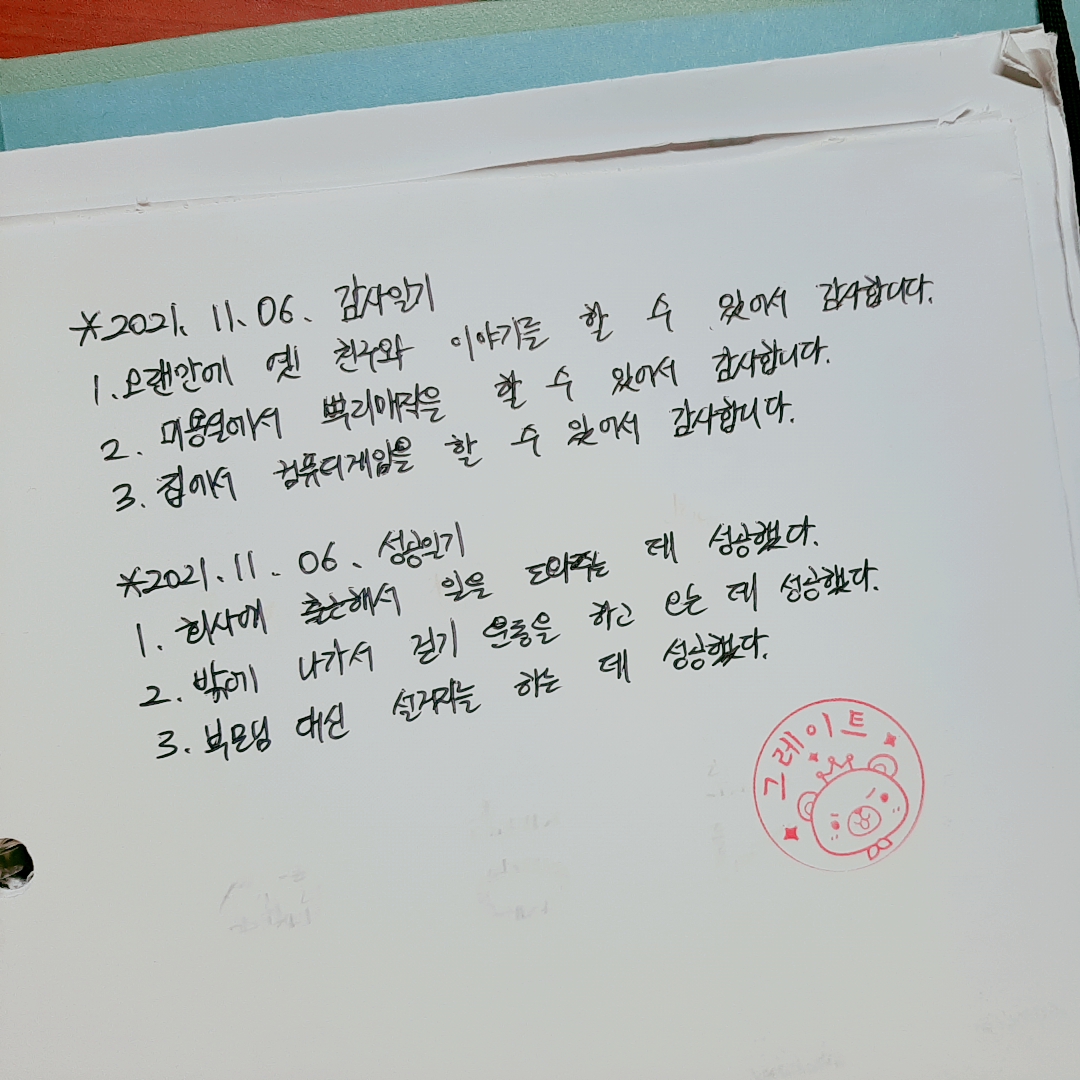 *2021. 11. 06. 감사일기
1. 오랜만에 옛 친구와 이야기를 할 수 있어서 감사합니다.
2. 미용실에서 뿌리매직을 할 수 있어서 감사합니다.
3. 집에서 컴퓨터게임을 할 수 있어서 감사합니다.
*2021. 11. 06. 성공일기
1. 회사에 출근해서 일을 도와주는 데 성공했다.
2. 밖에 나가서 걷기 운동을 하고 오는 데 성공했다.
3. 부모님 대신 설거지를 하는 데 성공했다.
그레이트